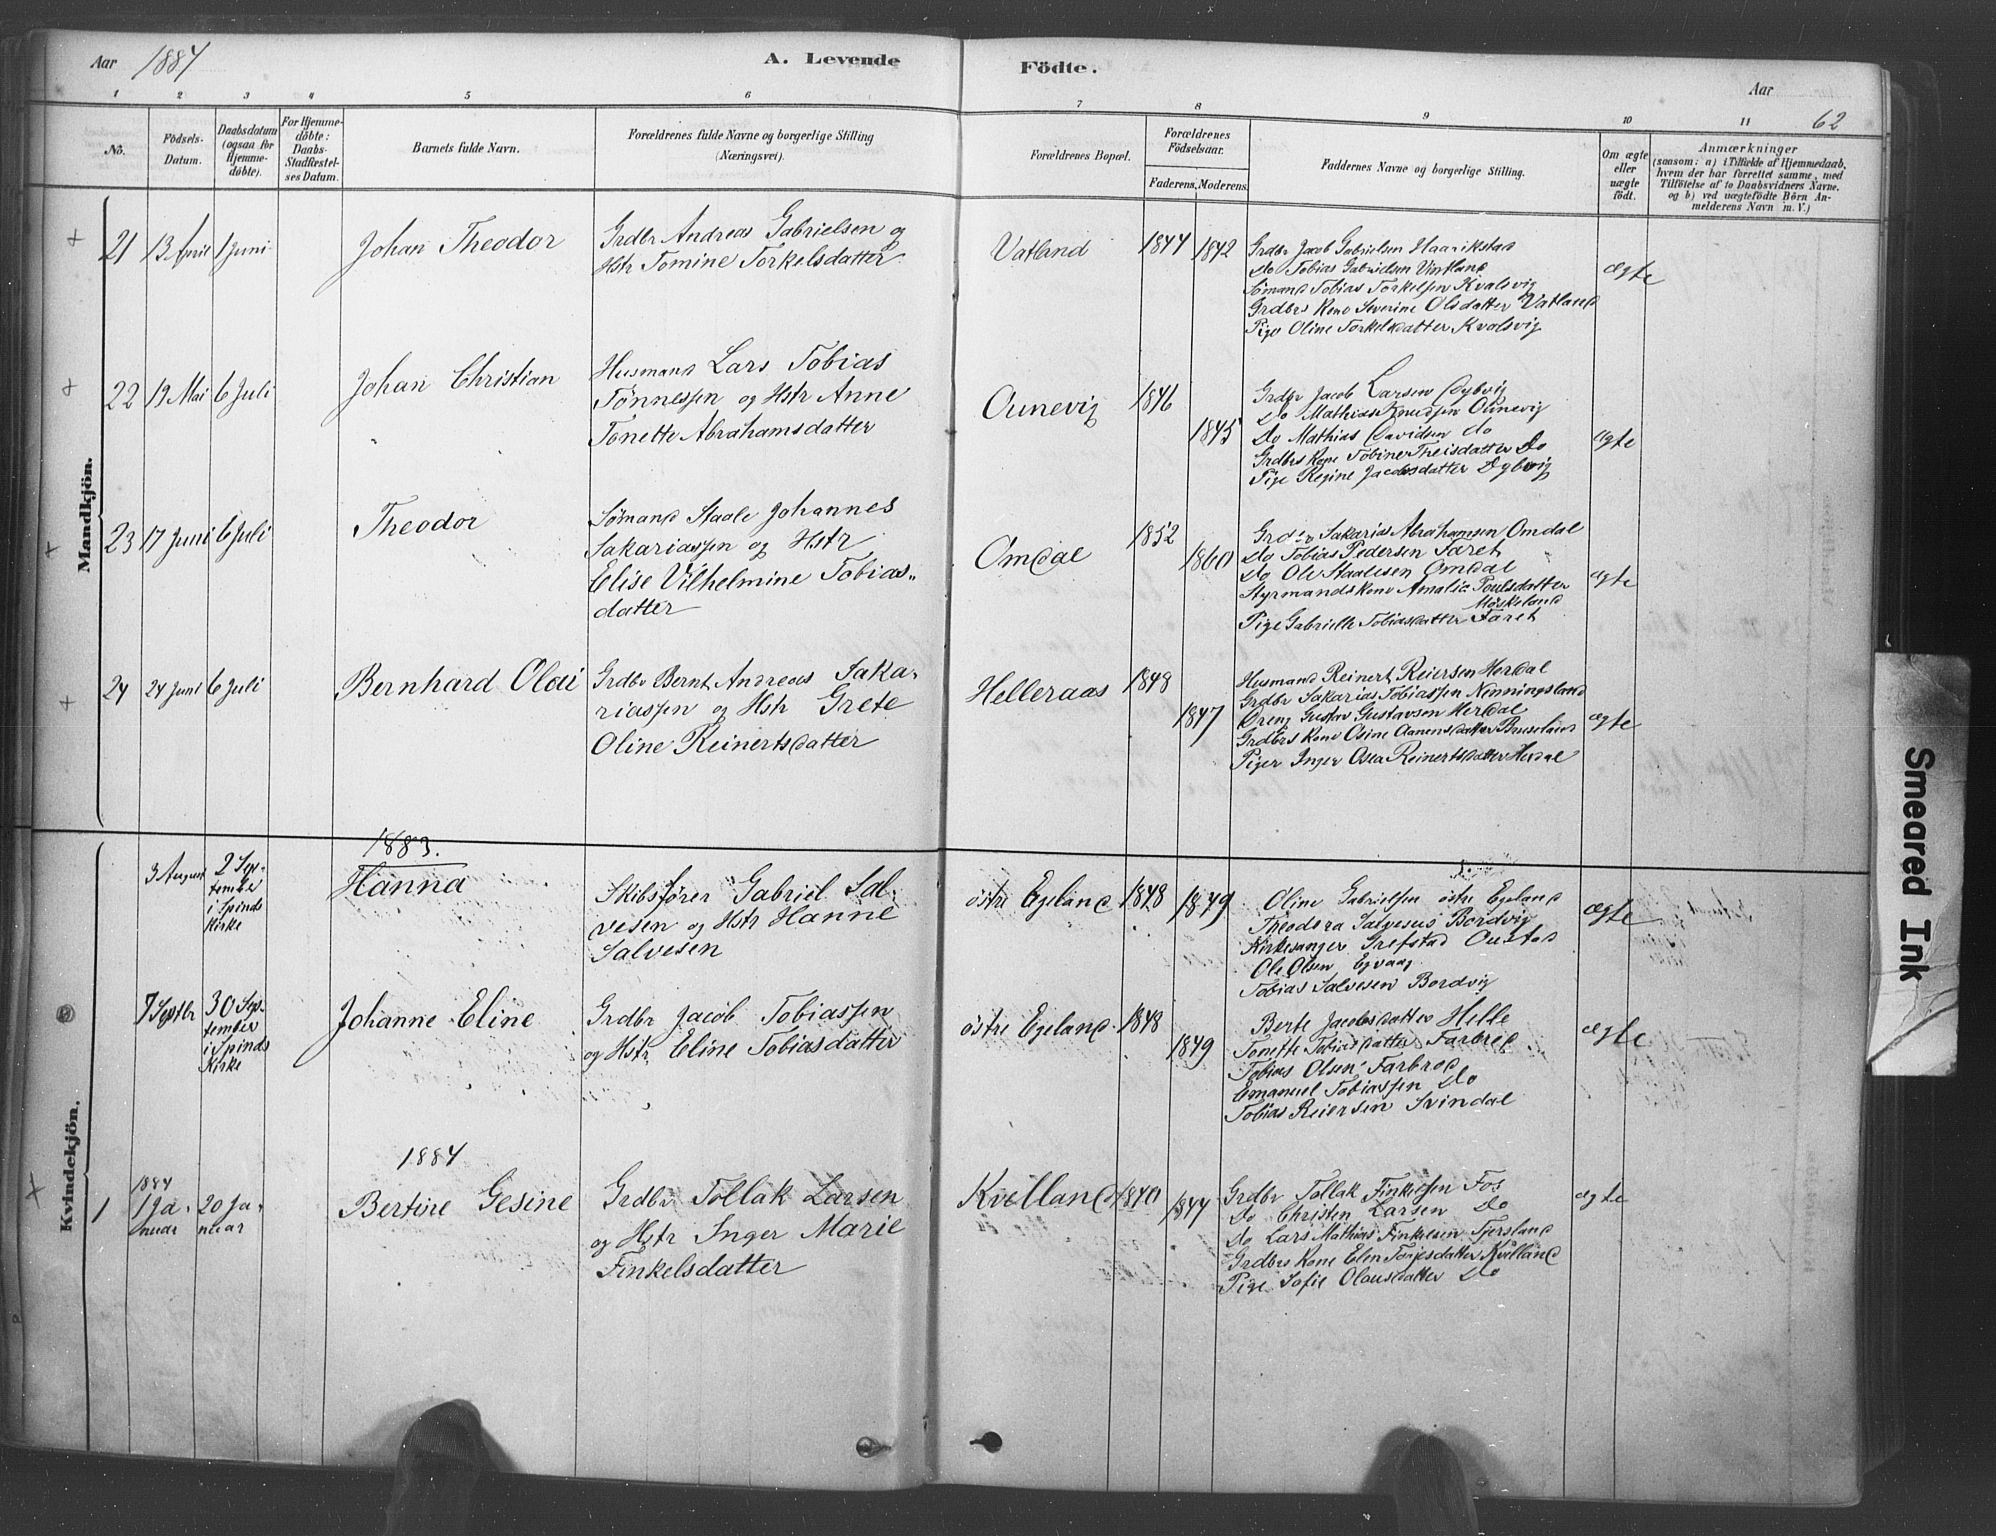 Aar 1884
A. Levende
Födte.
Aar
62
1 2 3 4 5 6 7 8 9 10 11
No.
Födsels-
Datum.
Daabsdatum
(ogsaa for
Hjemme-
döbte).
For Hjemme-
döbte:
Daabs-
Stadfæstel-
ses Datum.
Barnets fulde Navn.
Forældrenes fulde Navne og borgerlige Stilling
(Næringsvei).
Forældrenes Bopæl.
Forældrenes
Födselsaar.
Faderens. Moderens.
Faddernes Navne og borgerlige Stilling.
Om ægte
eller
uægte
födt.
Anmærkninger
(saasom: a) i Tilfælde af Hjemmedaab,
hvem der har forrettet samme, med
Tilföielse af to Daabsvidners Navne,
og b) ved uægtefödte Börn An-
melderens Navn m. V.)
Mandkjön.
21 13 April 1 Juni
Johan Theodor
Grdbr Andreas Gabrielsen og
Hstr Tomine Torkelsdatter
Vatland
1844 1842
Grdbr Jacob Gabrielsen Haarikstad
Do Tobias Gabrielsen Vintland
Sömand Tobias Torkelsen Kvalsvig
Grdbrs Kone Severine Olsdatter Vatland
Pige Oline Torkelsdatter Kvalsvig
ægte
22 19 Mai 6 Juli
Johan Christian
Husmand Lars Tobias
Tönnessen og Hstr Anne
Tonette Abrahamsdatter
Ounevig
1846
1845
Grdbr Jacob Larsen Dybvig
Do Mathias Knudsen Ounevig
Do Mathias Davidsen do
Grdbrs Kone Tobine Theisdatter Do
Pige Regine Jacobsdatter Dybvig
ægte
23 17 Juni 6 Juli
Theodor
Sömand Staale Johannes
Sakariassen og Hstr
Elise Vilhelmine Tobias„
datter
Omdal
1852
1860
Grdbr Sakarias Abrahamsen Omdal
Do Tobias Pedersen Faret
Do Ole Staalesen Omdal
Styrmandskone Amalia Poulsdatter
Möskeland
Pige Gabrielle Tobiasdatter Faret
ægte
24 24 Juni 6 Juli
Bernhard Olai
Grdbr Bernt Andreas Saka-
riassen og Hstr Grete
Oline Reinertsdatter
Helleraas
1848
1847
Husmand Reinert Reiersen Herdal
Grdbr Sakarias Tobiassen Nenningsland
Dreng Gustav Gustavsen Herdal
Grdbrs Kone Osine Aanensdatter Bruseland
Piger Inger Osea Reinertsdatter Herdal
ægte
Kvindekjön.
1883.
3 August
2 Sep-
tember
i Spinds
Kirke
Hanna
Skibsförer Gabriel Sal-
vesen og Hstr Hanne
Salvesen
östre Egeland
1848 1849
Oline Gabrielsen östre Egeland
Theodora Salvesens Bordvig
Kirkesanger Grefstad Oustad
Ole Olsen Egvaag
Tobias Salvesen Bordvig
ægte
7 Septbr
30 Sep-
tember
i Spinds
Kirke
Johanne Eline
Grdbr Jacob Tobiassen
og Hstr Eline Tobiasdatter
östre Egeland
1848
1849
Berte Jacobsdatter Helle
Tonette Tobiasdatter Farbrod
Tobias Olsen Farbrod
Emanuel Tobiassen Do
Tobias Reiersen Svindal
ægte
1884
1
1884
1 Ja-
nuar
20 Ja-
nuar
Bertine Gesine
Grdbr Tollak Larsen
og Hstr Inger Marie
Finkelsdatter
Kvelland
1840
1844
Grdbr Tollak Finkelsen Fos
Do Christen Larsen Do
Do Lars Mathias Finkelsen Tjersland
Grdbrs Kone Elen Torjesdatter Kvelland
Pige Sofie Olausdatter Do
ægte
Smeared Ink